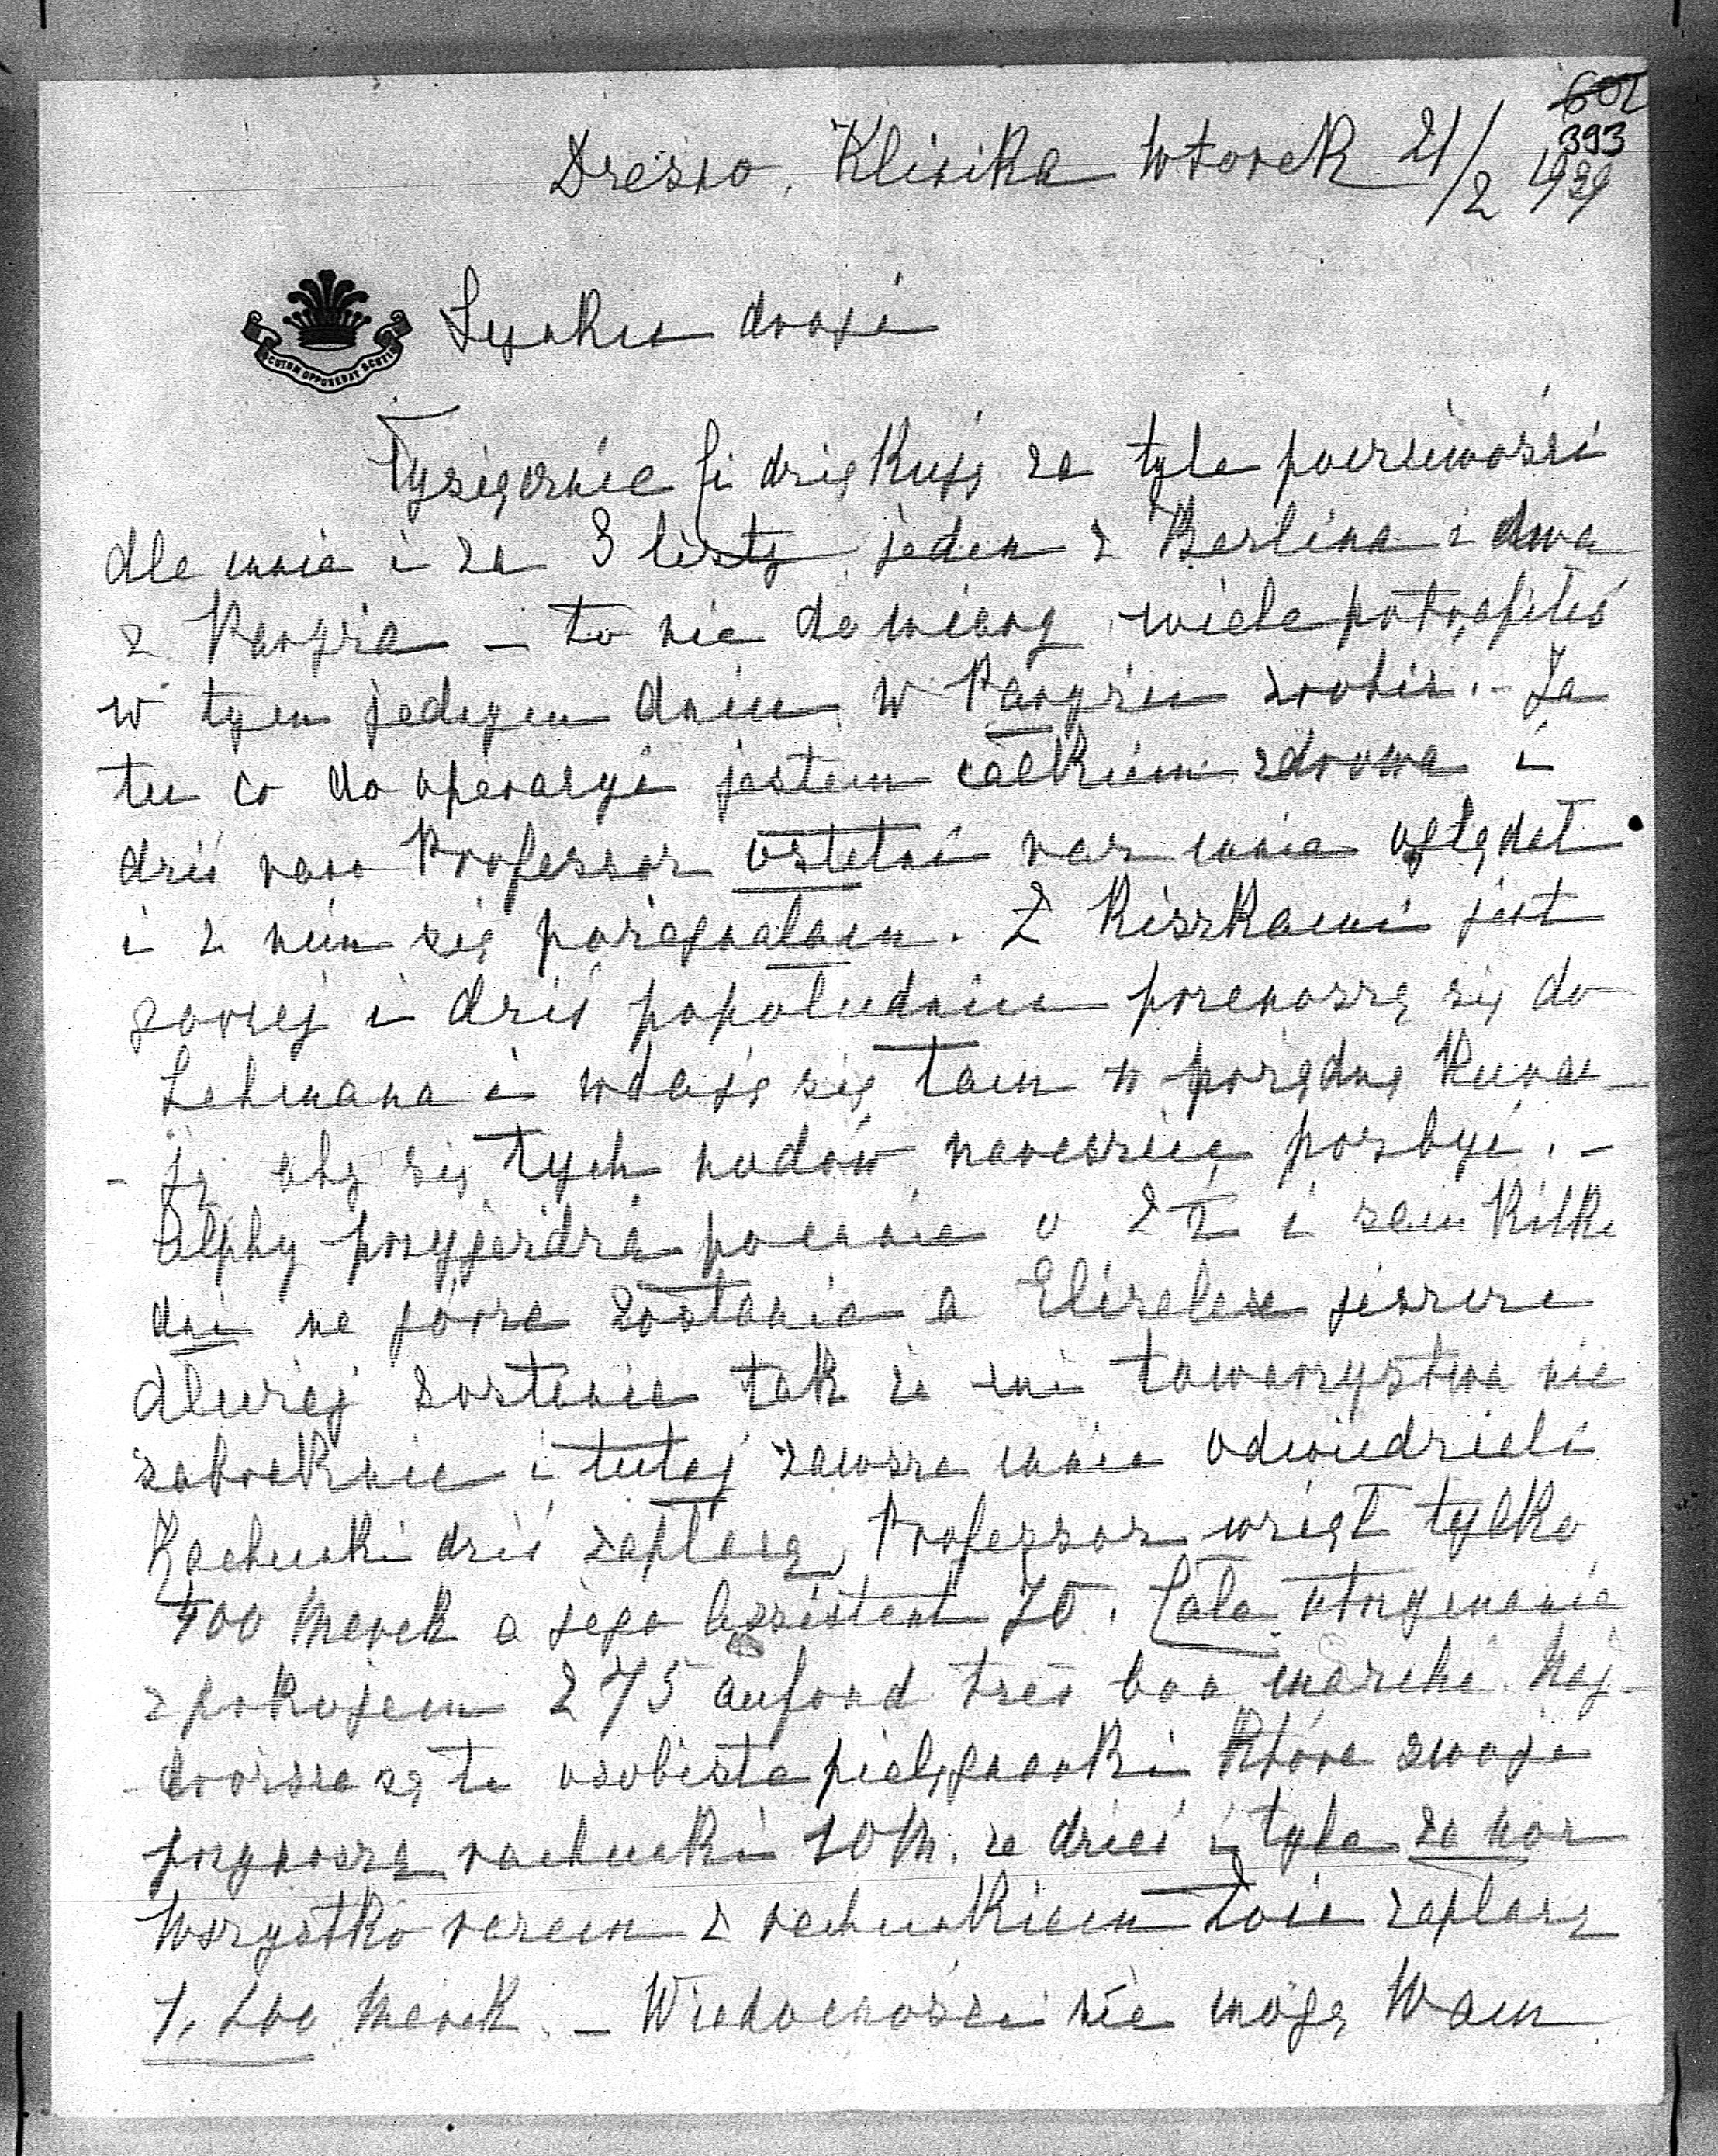 602
393
Drezno, Klinika Wtorek 21/2 1939
SCUTUM OPPONEBAT SCUTIS
drogi
Tysięcznie Ci dziękuję za tyle poczciwości
dla mnie i za 3 listy jeden z Berlina i dwa
z Paryża – to nie do wiary wiele potrafiłeś
w tym jednym dniu w Paryżu zrobić. – Ja
tu co do operacyi jestem całkiem zdrowa i
dziś rano Professor ostatni raz mnie oglądał
i z nim się pożegnałam. Z kiszkami jest
gorzej i dziś popołudniu przenoszę się do
Lehmana i wdaję się tam w porządną kura-
- ję aby się tych nudów nareszcie pozbyć. –
Alphy przyjeżdża po mnie o i sam kilka
dni na górze zostanie a jeszcze
dłużej zostanie tak że mi towarzystwa nie
zabraknie i tutaj zawsze mnie odwiedzieli
Rachunki dziś zapłacę, Professor wziął tylko
400 Marek a jego Assistent 70. Całe utrzymanie
z pokojem 275 au fond très bon marché. Naj-
- droższe są te osobiste pielęgnarki które swoje
przynoszą rachunki 10 M. za dzień i tyle za noc
Wszystko razem z rachunkiem Zoie zapłacę
Marek. – Wiadomości nie mogę Wam